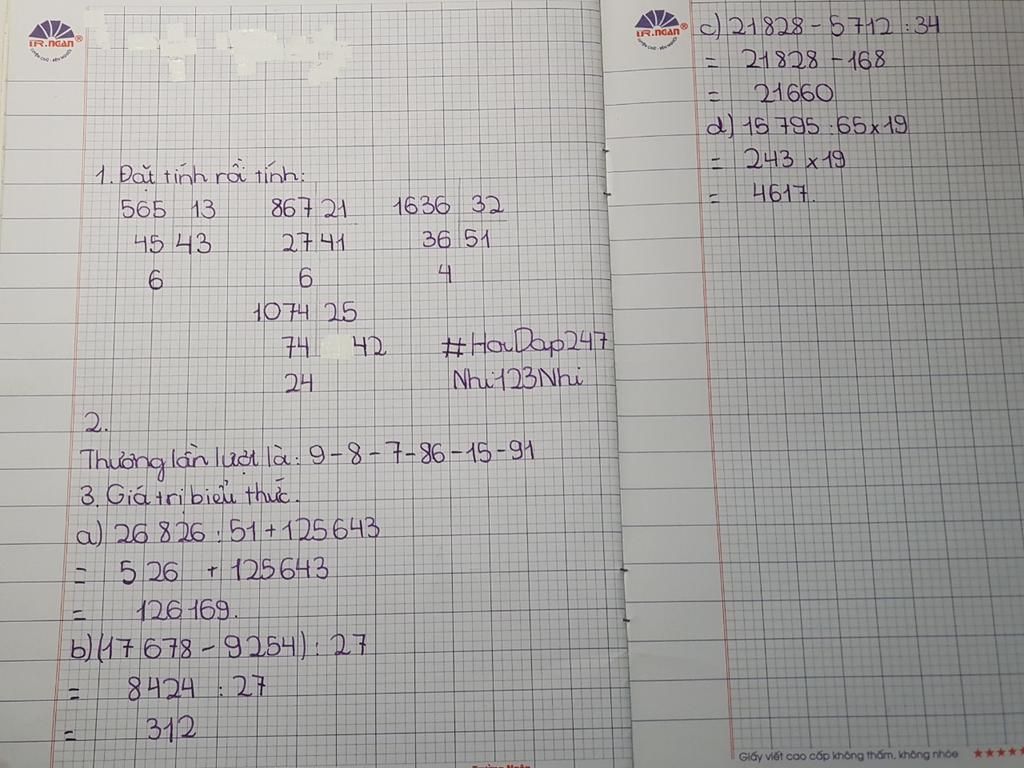 DR.NGAN®
LUYỆN CHỮ - RÈN NGƯỜI
1. Đặt tính rồi tính:
565 13 867 21 1636 32
45 43 27 41 36 51
6 6 4
1074 25
74 42 #HoiDap247
24 Nhi123Nhi
2.
Thương lần lượt là: 9-8-7-86-15-91
3. Giá trị biểu thức.
a) 26 826 : 51 + 125643
= 526 + 125643
= 126169.
b) (17 678 - 9254) : 27
= 8424 : 27
= 312
DR.NGAN®
LUYỆN CHỮ - RÈN NGƯỜI
c) 21828 - 5712 : 34
= 21828 - 168
= 21660
d) 15 795 : 65 x 19
= 243 x 19
= 4617.
Giấy viết cao cấp không thấm, không nhòe